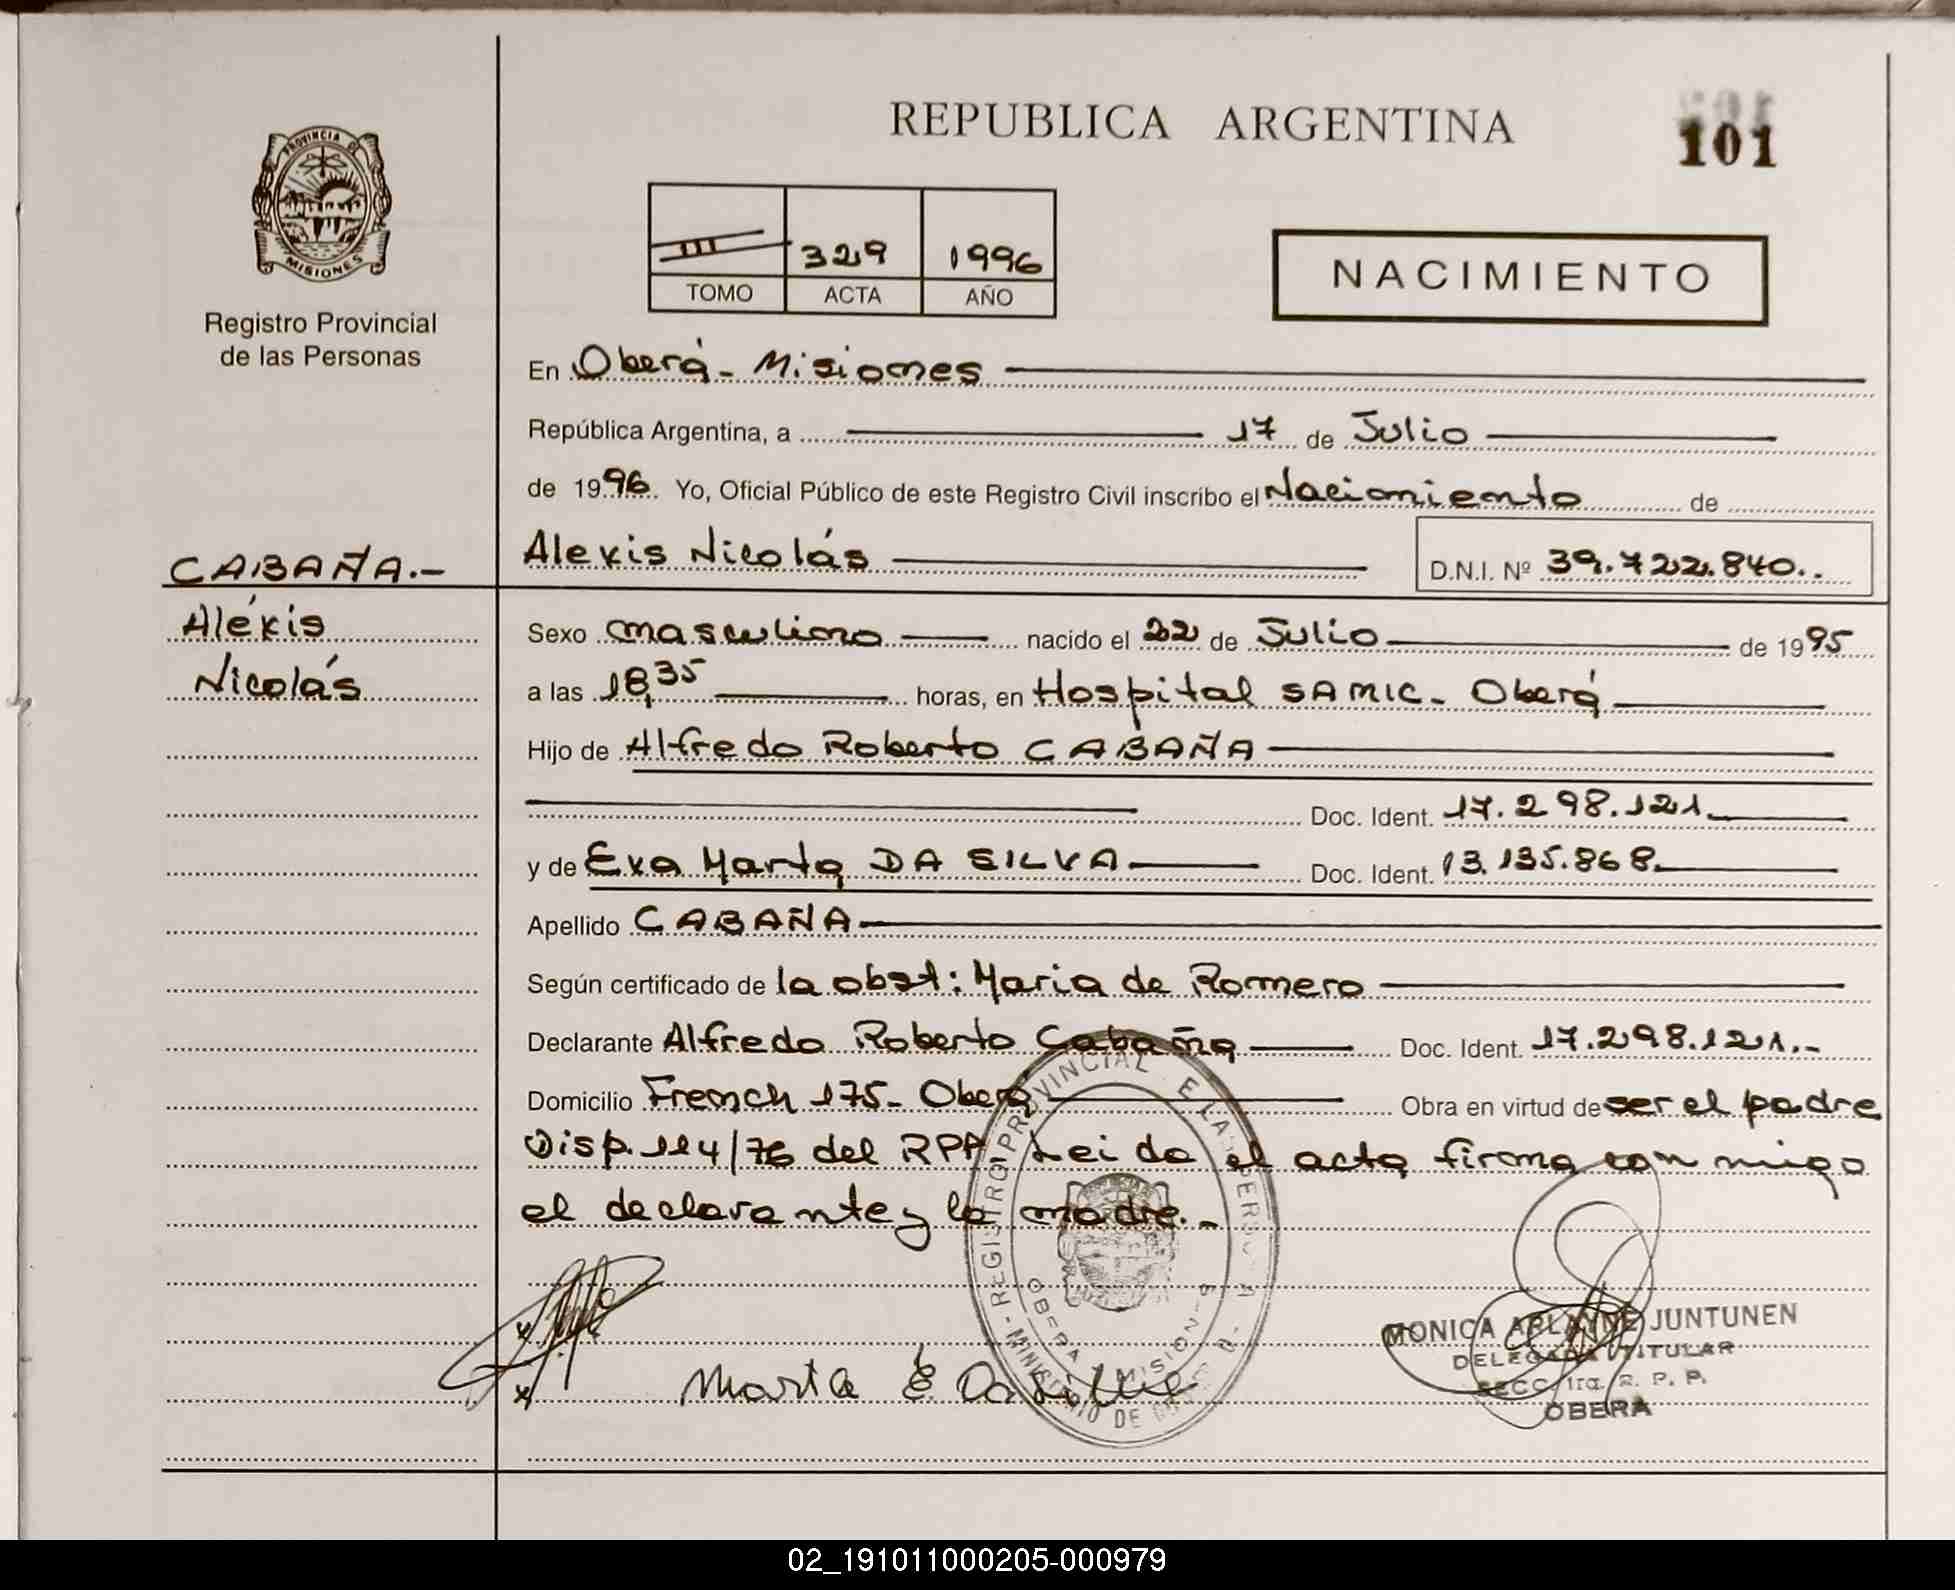 REPUBLICA ARGENTINA
101
PROVINCIA DE
MISIONES
Registro Provincial
de las Personas
III 329 1996
TOMO ACTA AÑO
NACIMIENTO
En Oberá - Misiones
República Argentina, a 17 de Julio
de 1996 Yo, Oficial Público de este Registro Civil inscribo el Nacimiento de
CABAÑA.-
Alexis Nicolás D.N.I. Nº 39.722.840.
Aléxis
Nicolás
Sexo masculino nacido el 22 de Julio de 1995
a las 18,35 horas, en Hospital SAMIC - Oberá
Hijo de Alfredo Roberto CABAÑA
Doc. Ident. 17.298.121.
y de Eva Marta DA SILVA Doc. Ident. 13.135.868.
Apellido CABAÑA
Según certificado de la obst: Maria de Romero
Declarante Alfredo Roberto Cabaña Doc. Ident. 17.298.121.-
Domicilio French 175 - Oberá Obra en virtud de ser el padre
Disp. 114/76 del RPP Leida el acta firma con migo
el declarante y la madre.-
REGISTRO PROVINCIAL
OBERA MISIONES
MINISTERIO DE
Marta E. Da Silva
MONICA JUNTUNEN
DELEGADA TITULAR
SECC. 1ra. R. P. P.
OBERA
02_191011000205-000979